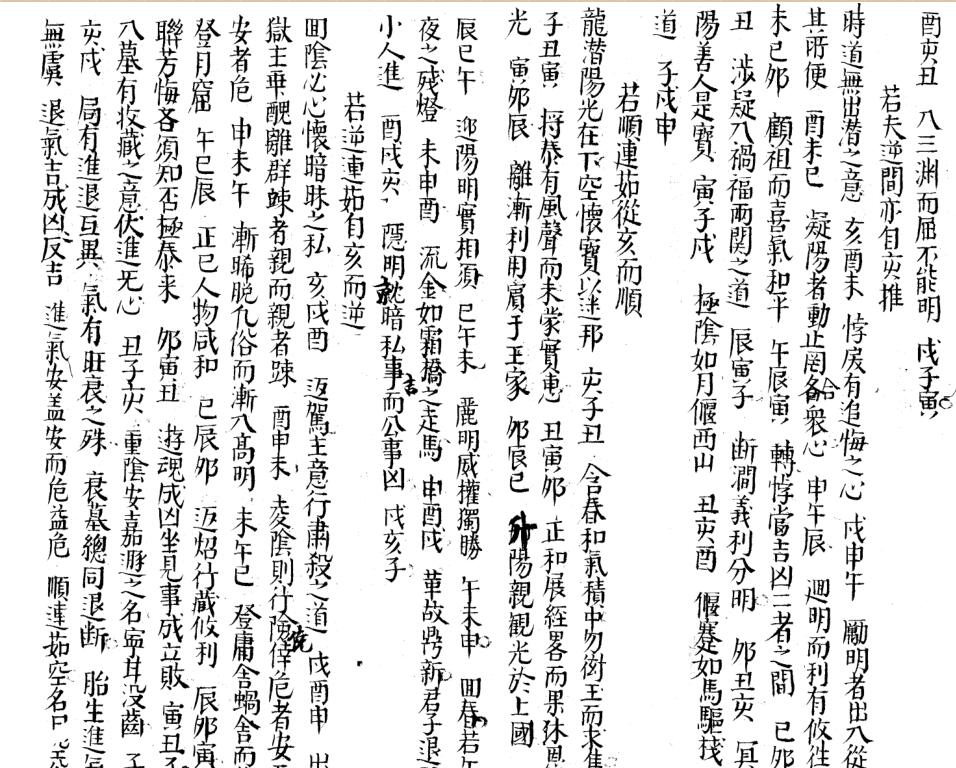 酉亥丑 入三渊而屈不能明 戌子寅
若夫逆間亦自亥推
時道無出潜之意 亥酉未 悖戾有追悔之心 戌申午 勵明者出入從
其所便 酉未巳 凝陽者動止罔合衆心 申午辰 週明而利有攸往
未巳夘 顧祖而喜氣和平 午辰寅 轉悖當吉凶二者之間 巳夘
丑 涉疑入禍福両関之道 辰寅子 断澗義利分明 夘丑亥 冥
陽善人是寶 寅子戌 極陰如月偃西山 丑亥酉 偃蹇如馬驅栈
道 子戌申
若順連茹從亥而順
龍潜陽光在下空懷寶以迷邦 亥子丑 含春和氣積中勿衒玉而求售
子丑寅 将泰有風聲而未蒙實惠 丑寅夘 正和展經畧而果沐恩
光 寅夘辰 離漸利用賓于王家 夘辰巳 升陽親観光於上國
辰巳午 迎陽明實相須 巳午未 麗明威權獨勝 午未申 回春若午
夜之残燈 未申酉 流金如霜橋之走馬 申酉戌 革故鼎新君子退
小人進 酉戌亥 隱明就暗私事吉而公事凶 戌亥子
若逆連茹自亥而逆
囬陰必心懷暗昧之私 亥戌酉 返駕主意行肅殺之道 戌酉申 出
獄主乖醜離群踈者親而親者踈 酉申未 凌陰則行險僥倖危者安
安者危 申未午 漸晞脱仇俗而漸入高明 未午巳 登庸舍蝸舍而
登月窟 午巳辰 正巳人物咸和 巳辰夘 返炤行蔵攸利 辰夘寅
聯芳悔吝須知否極泰来 夘寅丑 遊魂成凶坐見事成立敗 寅丑子
入墓有收蔵之意伏進无心 丑子亥 重陰安嘉遯之名寧耳没齒 子
亥戌 局有進退互異 氣有旺衰之殊 衰墓總同退断 胎生進氣
無虞 退氣吉成凶反吉 進氣安盖安而危益危 順連茹空名